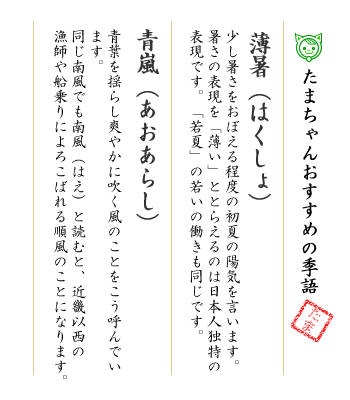 たまちゃんおすすめの季語
薄暑（はくしょ）
少し暑さをおぼえる程度の初夏の陽気を言います。
暑さの表現を「薄い」ととらえるのは日本人独特の
表現です。「若夏」の若いの働きも同じです。
青嵐（あおあらし）
青葉を揺らし爽やかに吹く風のことをこう呼んでい
ます。
同じ南風でも南風（はえ）と読むと、近畿以西の
漁師や船乗りによろこばれる順風のことになります。